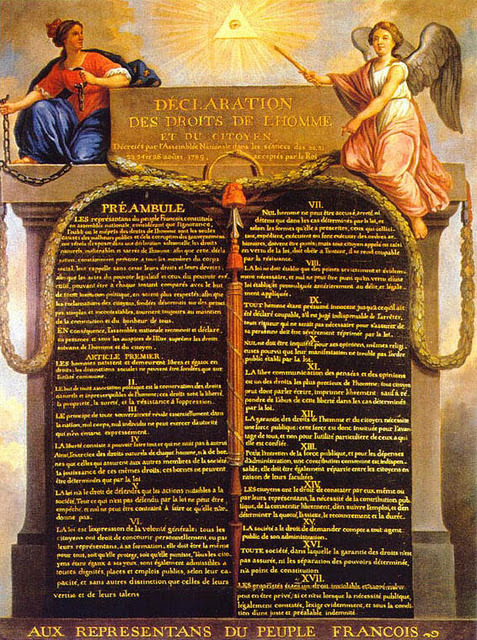 DÉCLARATION
DES DROITS DE L'HOMME
ET DU CITOYEN,
Décretés par l'Assemblée Nationale dans les séances des 20, 21,
23, 24 et 26 aoust 1789, acceptés par le Roi
PRÉAMBULE
LES représentans du peuple Francois, constitués
en assemblée nationale, considérant que l'ignorance,
l'oubli ou le mépris des droits de l'homme sont les seules
causes des malheurs publics et de la corruption des gouvernemens
ont résolu d'exposer dans une déclaration solemnelle, les droits
naturels, inaliénables et sacrés de l'homme: afin que cette décla-
ration, constamment présente a tous les membres du corps
social, leur rappelle sans cesse leurs droits et leurs devoirs;
afin que les actes du pouvoir législatif et ceux du pouvoir exé-
cutif, pouvant être a chaque instant comparés avec le but
de toute institution politique, en soient plus respectés; afin que
les réclamations des citoyens, fondées désormais sur des princi-
pes simples et incontestables, tournent toujours au maintien
de la constitution et du bonheur de tous.
EN conséquence, l'assemblée nationale reconnoit et déclare,
en présence et sous les auspices de l'Etre suprême les droits
suivans de l'homme et du citoyen.
ARTICLE PREMIER.
LES hommes naissent et demeurent libres et égaux en
droits; les distinctions sociales ne peuvent être fondées que sur
l'utilité commune.
II.
LE but de toute association politique est la conservation des droits
naturels et imprescriptibles de l'homme; ces droits sont la liberté,
la propriété, la sureté, et la résistance à l'oppression.
III.
LE principe de toute souveraineté réside essentiellement dans
la nation, nul corps, nul individu ne peut exercer d'autorité
qui n'en émane expressément.
IV.
LA liberté consiste a pouvoir faire tout ce qui ne nuit pas à autrui
Ainsi, l'exercice des droits naturels de chaque homme, n'a de bor-
nes que celles qui assurent aux autres membres de la société
la jouissance de ces mêmes droits; ces bornes ne peuvent
être déterminées que par la loi
V.
LA loi n'a le droit de défendre que les actions nuisibles à la
société. Tout ce qui n'est pas défendu par la loi ne peut être
empêché, et nul ne peut être contraint à faire ce qu'elle n'or-
donne pas.
VI.
LA loi est l'expression de la volonté générale; tous les
citoyens ont droit de concourir personnellement, ou par
leurs représentans, à sa formation; elle doit être la même
pour tous, soit qu'elle protege, soit qu'elle punisse, Tous les cito-
yens étant égaux à ses yeux, sont également admissibles à
toutes dignités, places et emplois publics, selon leur ca-
pacité, et sans autres distinction que celles de leurs
vertus et de leurs talens
VII.
NUL homme ne peut être accusé, arreté, ni
détenu que dans les cas déterminés par la loi, et
selon les formes qu'elle a prescrites, ceux qui sollici-
tent, expédient, exécutent ou font exécuter des ordres ar-
bitraires, doivent être punis; mais tout citoyen appelé ou saisi
en vertu de la loi, doit obéir a l'instant, il se rend coupable
par la résistance.
VIII.
LA loi ne doit établir que des peines strictement et évidem-
ment nécessaire, et nul ne peut être puni qu'en vertu d'une
loi établie et promulguée antérierement au délit, et légale-
ment appliquée.
IX.
TOUT homme étant présumé innocent jusqu'a ce qu'il ait
été déclaré coupable, s'il est jugé indispensable de l'arrêter,
toute rigueur qui ne serait pas nécessaire pour s'assurer de
sa personne doit être sévèrement réprimée par la loi.
X.
NUL ne doit être inquiété pour ses opinions, mêmes religi-
euses pourvu que leur manifestation ne trouble pas l'ordre
public établi par la loi.
XI.
LA libre communication des pensées et des opinions
est un des droits les plus precieux de l'homme; tout citoyen
peut donc parler écrire, imprimer librement: sauf à ré-
pondre de l'abus de cette liberté dans les cas déterminés
par la loi.
XII.
LA garantie des droits de l'homme et du citoyen nécessite
une force publique; cette force est donc instituée pour l'avan-
tage de tous, et non pour l'utilité particuliere de ceux a qui
elle est confiée.
XIII.
Pour l'entretien de la force publique, et pour les dépenses
d'administration, une contribution commune est indispen-
sable; elle doit être également répartie entre les citoyens en
raison de leurs facultées
XIV.
LES citoyens ont le droit de constater par eux même ou
par leurs représentans, la nécessité de la contribution pub-
lique, de la consentir librement, d'en suivre l'emploi, et d'en
déterminer la quotité, l'assiette, le recouvrement et la durée.
XV.
LA société a le droit de demander compte a tout agent
public de son administration.
XVI.
TOUTE société, dans laquelle la garantie des droits n'est
pas assurée, ni la séparation des pouvoirs déterminée,
n'a point de constitution
XVII.
LES propriétés étant un droit inviolable et sacré, nul ne
peut en être privé, si ce n'est lorsque la nécessité publique,
légalement constatée, l'exige evidemment, et sous la condi-
tion d'une juste et préalable indemnité.
AUX REPRESENTANS DU PEUPLE FRANCOIS